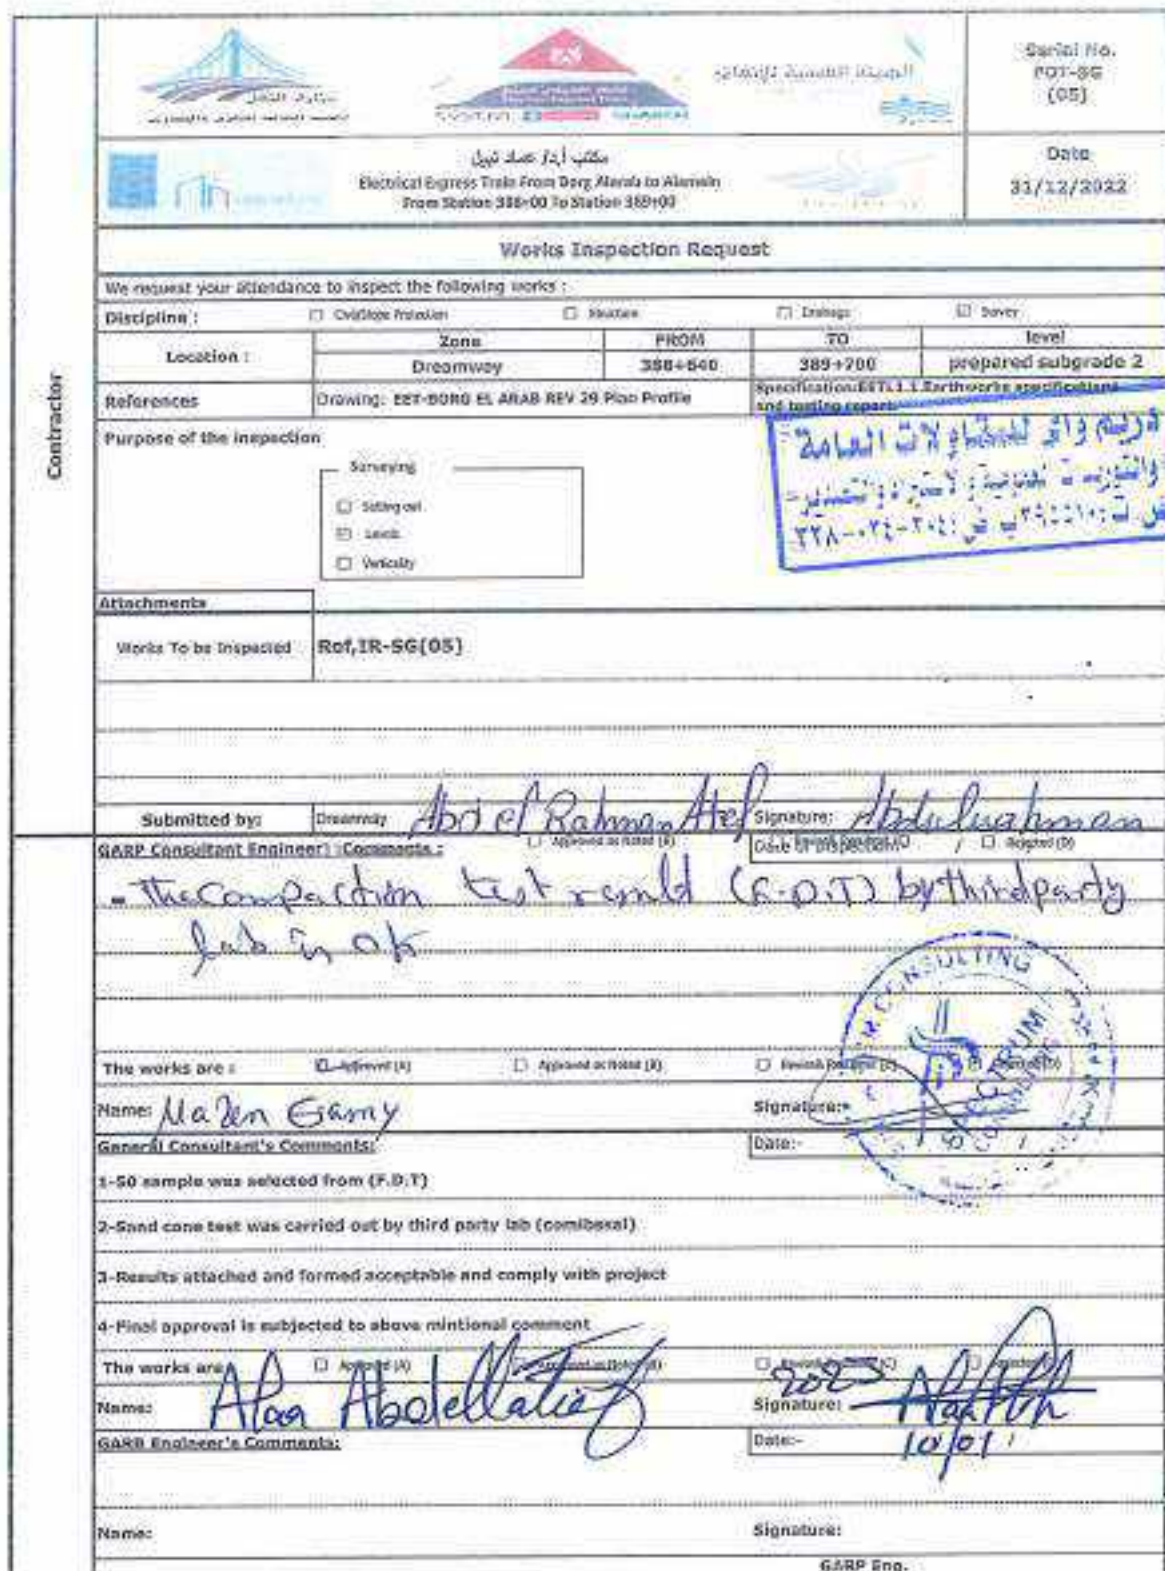 Serial No.
(05)
Date
31/12/2022
مكتب أ.د/ عماد نبيل
Electrical Express Train From Borg Alarab to Alamein
From Station 388+00 To Station 389+00
Works Inspection Request
We request your attendance to inspect the following works :
Discipline :
Structure
Drainage
Survey
Location :
Zone
FROM
TO
level
Dreamway
388+640
389+700
prepared subgrade 2
References
Drawing: EET-BORG EL ARAB REV 29 Plan Profile
Specification:EETL1.1 Earthworks specifications
and testing report
Contractor
Purpose of the inspection
Surveying
Setting out
Levels
Verticality
Attachments
Works To be Inspected
Ref,IR-SG(05)
Submitted by:
Dreamway
Abd el Rahman Atef
Signature:
GARP Consultant Engineer) :Comments :
Approved as Noted (B)
Date of Inspection:
Rejected (D)
- The Compaction test result (F.D.T) by third party
lab is ok
CONSULTING
SPECTRUM
The works are :
Approved (A)
Approved as Noted (B)
Name: Mazen Gamy
Signature:-
General Consultant's Comments:
Date:-
1-50 sample was selected from (F.D.T)
2-Sand cone test was carried out by third party lab (comibasal)
3-Results attached and formed acceptable and comply with project
4-Final approval is subjected to above mintional comment
The works are
Approved (A)
Name: Alaa Abdellatief
Signature:
GARB Engineer's Comments:
Date:-
10/01
Name:
Signature:
GARP Eng.